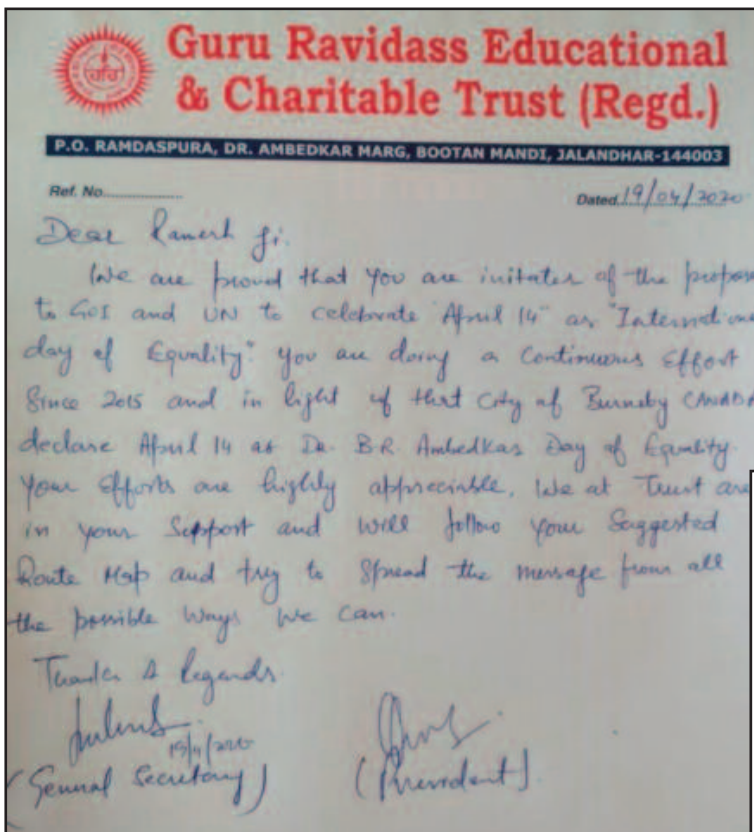 Guru Ravidass Educational
& Charitable Trust (Regd.)
P.O. RAMDASPURA, DR. AMBEDKAR MARG, BOOTAN MANDI, JALANDHAR-144003
Ref. No.............
Dated 19/04/2020
Dear Ramesh Ji.
We are proud that you are initater of the propos
to GOI and UN to celebrate "April 14" as "Internation
day of Equality". You are doing a Continuous Effort
Since 2015 and in light of that City of Burnaby CANADA
declare April 14 as Dr. B.R Ambedkar Day of Equality.
Your Efforts are highly appreciable. We at Trust are
in your Support and will follow your Suggested
Route Map and try to Spread the message from all
the possible ways we can.
Thanks & Regards.
(General Secretary) (President).